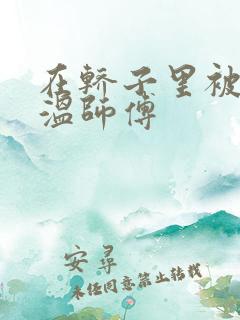 在轿子里被
温师傅
安寻
未经同意禁止转载